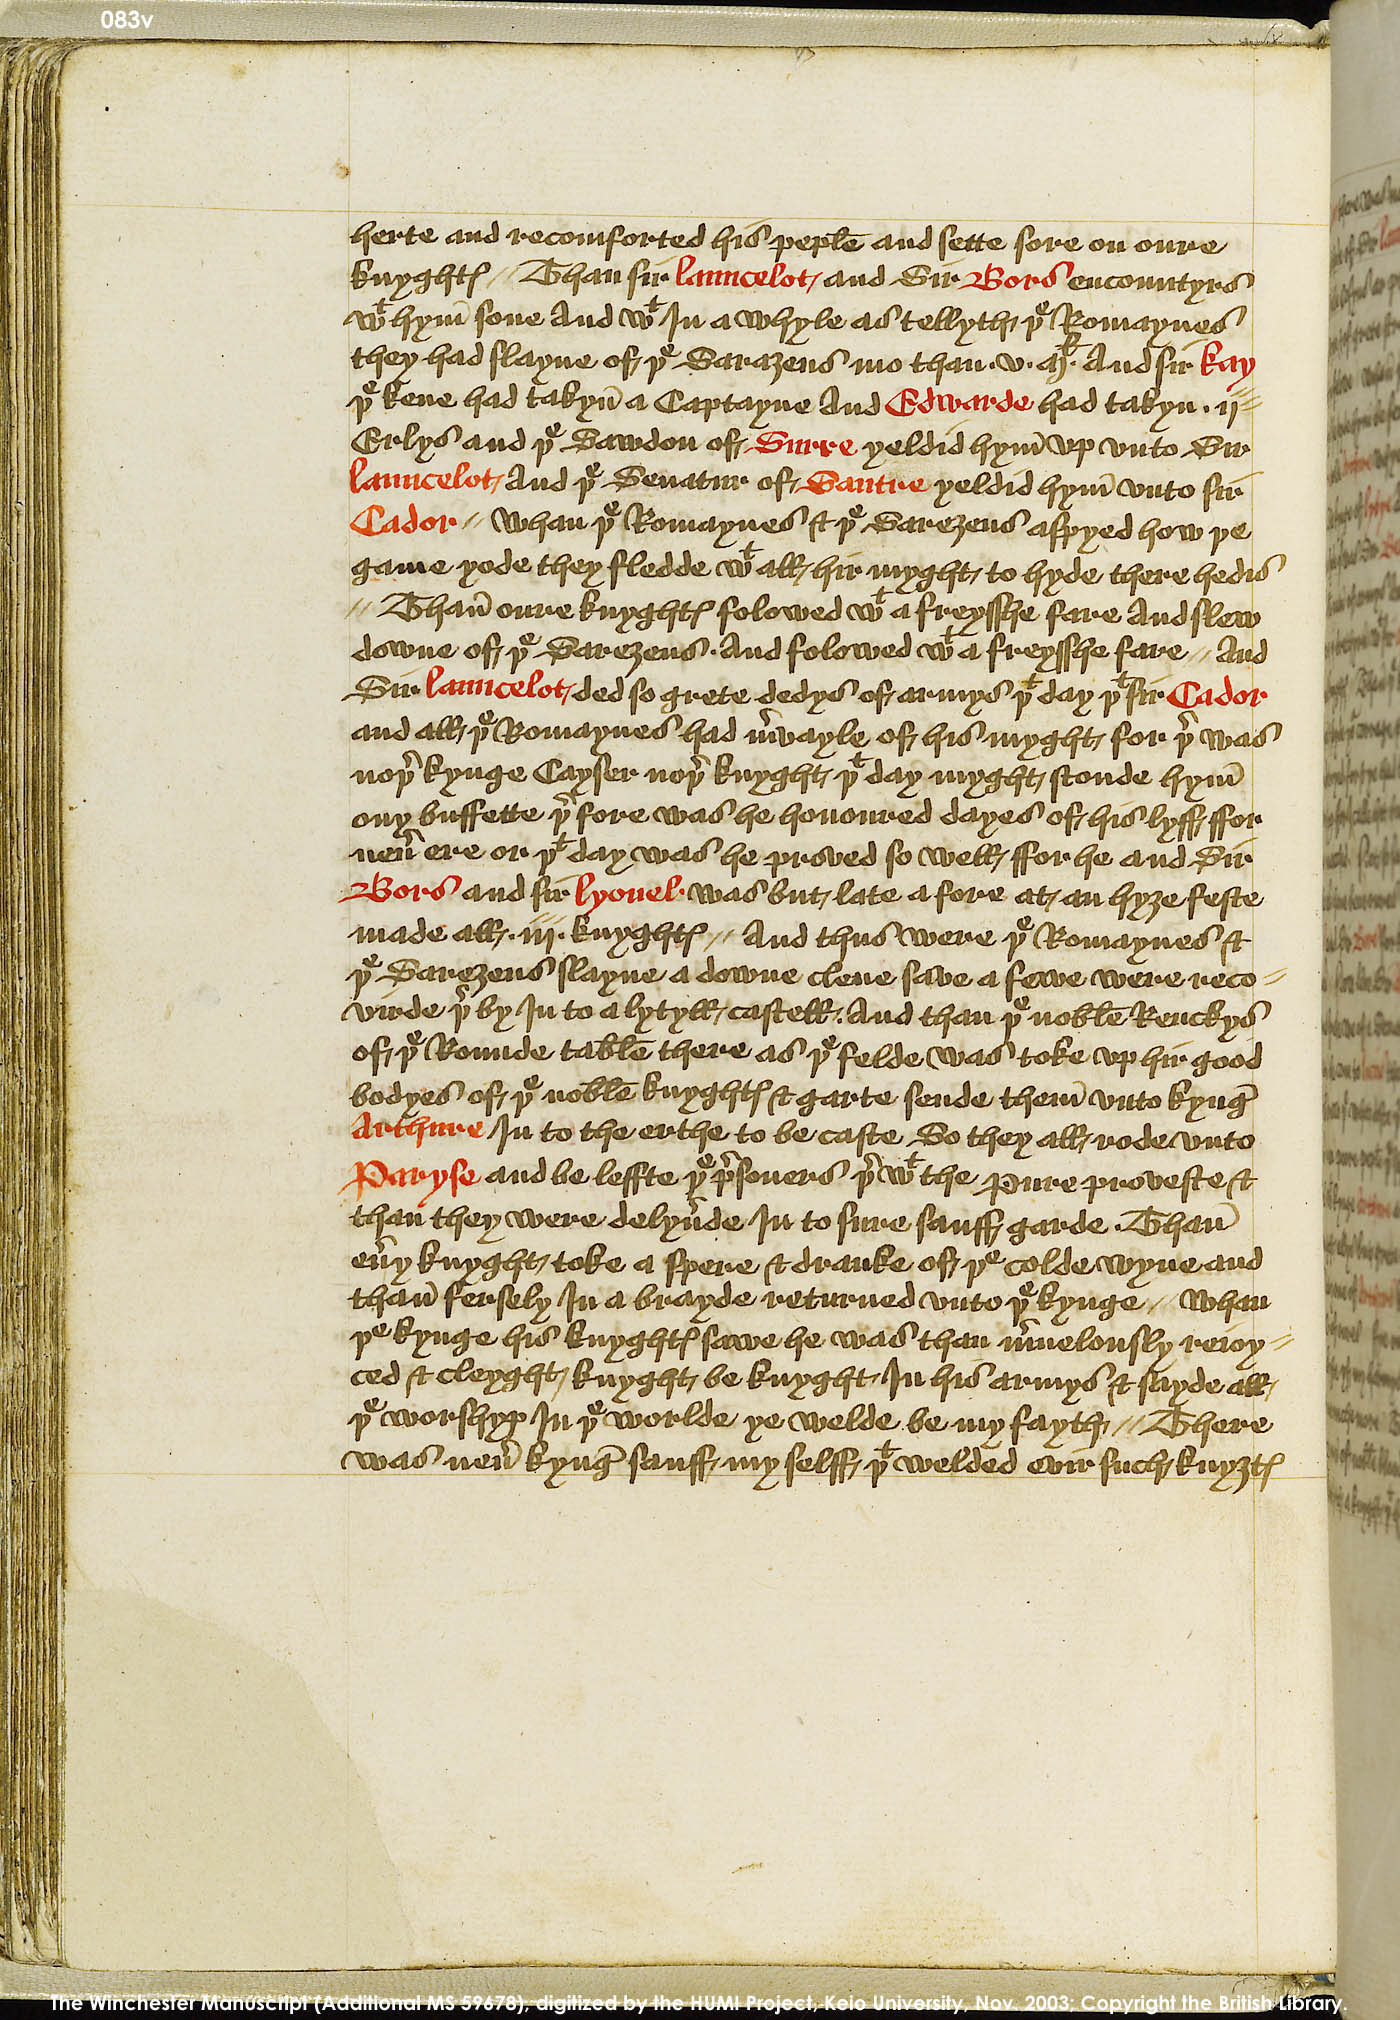 083v
herte and recomforted his peple and sette sore on oure
knyghtꝭ // Than sir launcelot and Sir Bors encountyrs
wᵗ hym̄ sone And wᵗ In a whyle as tellyth þᵉ Romaynes
they had slayne of þᵉ Sarazens mo than .v. Mˡ. And sir kay
þᵉ kene had takyn̄ a Captayne And Edwarde had takyn .ij
Erlys and þᵉ Sawdon of Surre yeldid hym̄ vp vnto Sir
launcelot And þᵉ Senatur of Sautre yeldid hym̄ vnto sir
Cador // Whan þᵉ Romaynes & þᵉ Sarezens aspyed how þe
game yode they fledde wᵗ all hir myght to hyde there hedis
// Than̄ oure knyghtꝭ folowed wᵗ a freysshe fare And slew
downe of þᵉ Sarezens. And folowed wᵗ a freysshe fare // And
Sir launcelot ded so grete dedys of armys þᵗ day þᵗ sir Cador
and all þᵉ Romaynes had m̉vayle of his myght for þ̉ was
noþ̉ kynge Cayser noþ̉ knyght þᵗ day myght stonde hym̄
ony buffette þ̉fore was he honoured dayes of his lyff ffor
neủ ere or þᵗ day was he proved so well ffor he and Sir
Bors and sir lyonel was but late a fore at an hyȝe feste
made all .iij. knyghtꝭ // And thus were þᵉ Romaynes &
þᵉ Sarezens slayne a downe clene save a fewe were reco=
virde þ̉ by In to a lytyll castell. And than þᵉ noble Renckys
of þᵉ Rounde table there as þᵉ felde was toke vp hir good
bodyes of þᵉ noble knyghtꝭ & garte sende them̄ vnto kynḡ
Arthure In to the erthe to be caste So they all rode vnto
Paryse and be leffte þᵉ p̉soners þ̉ wᵗ the Pure proveste &
than they were delyủde In to sure sauff garde. Than̄
eủy knyght toke a spere & dranke of þᵉ colde wyne and
than̄ fersely In a brayde returned vnto þᵉ kynge // Whan
þᵉ kynge his knyghtꝭ sawe he was than m̉uelously reioy=
ced & cleyght knyght be knyght In his armys & sayde all
þᵉ worshyp In þᵉ worlde ye welde be my fayth // There
was neủ kynḡ sauff my selff þᵗ welded evir such knyȝtꝭ
The Winchester Manuscript (Additional MS 59678), digitized by the HUMI Project, Keio University, Nov. 2003; Copyright the British Library.